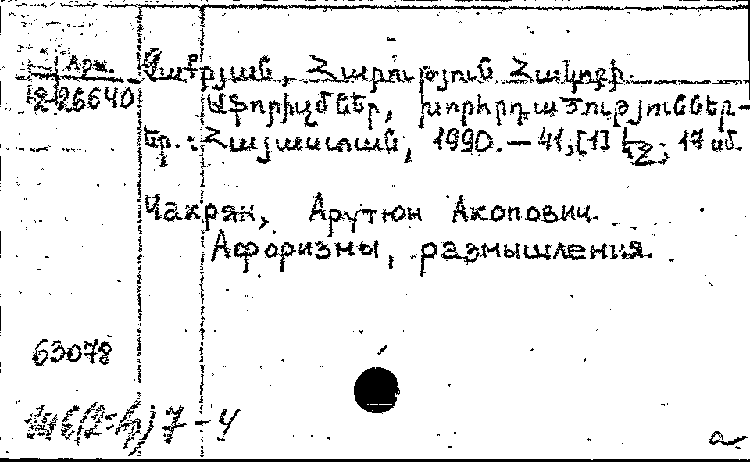 Չաքրյան, Հարություն Հակոբի.
Աֆորիզմներ, խորհրդածություններ.-
Եր.: Հայաստան, 1990.— 41,[1] էջ; 17 սմ.
Чакрян, Арутюн Акопович.
Афоризмы, размышления.
63078
7-4